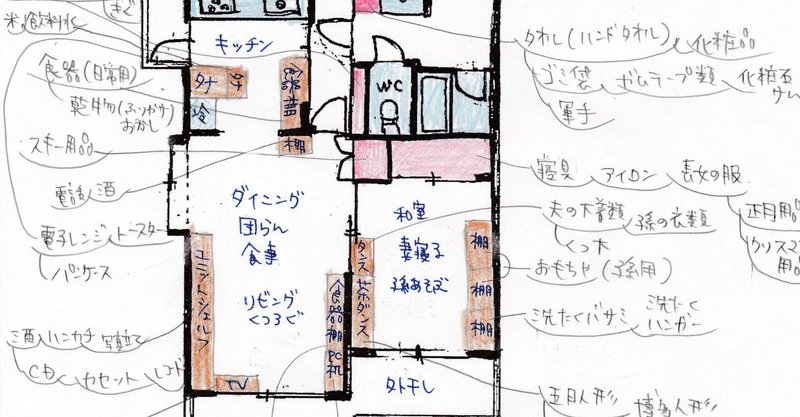 米、飲料水
キッチン
食器(日常用)
タナ
食器棚
冷
乾物(ふりかけ
おかし
スキー用品
棚
電話
酒
電子レンジ
トースター
パンケース
ダイニング
団らん
食事
リビング
くつろぐ
ユニットシェルフ
TV
食器棚
PC机
酒
ハンカチ
写真立て
CD
カセット
レコード
WC
和室
妻寝る
孫あそぶ
タンス
茶ダンス
棚
棚
棚
外干し
タオル(ハンドタオル)
化粧品
ゴミ袋
ガムテープ類
化粧石
軍手
寝具
アイロン
長女の服
夫の下着類
孫の衣類
くつ下
正月用品
クリスマス
用品
おもちゃ(孫用)
洗たくバサミ
洗たく
ハンガー
五月人形
博多人形